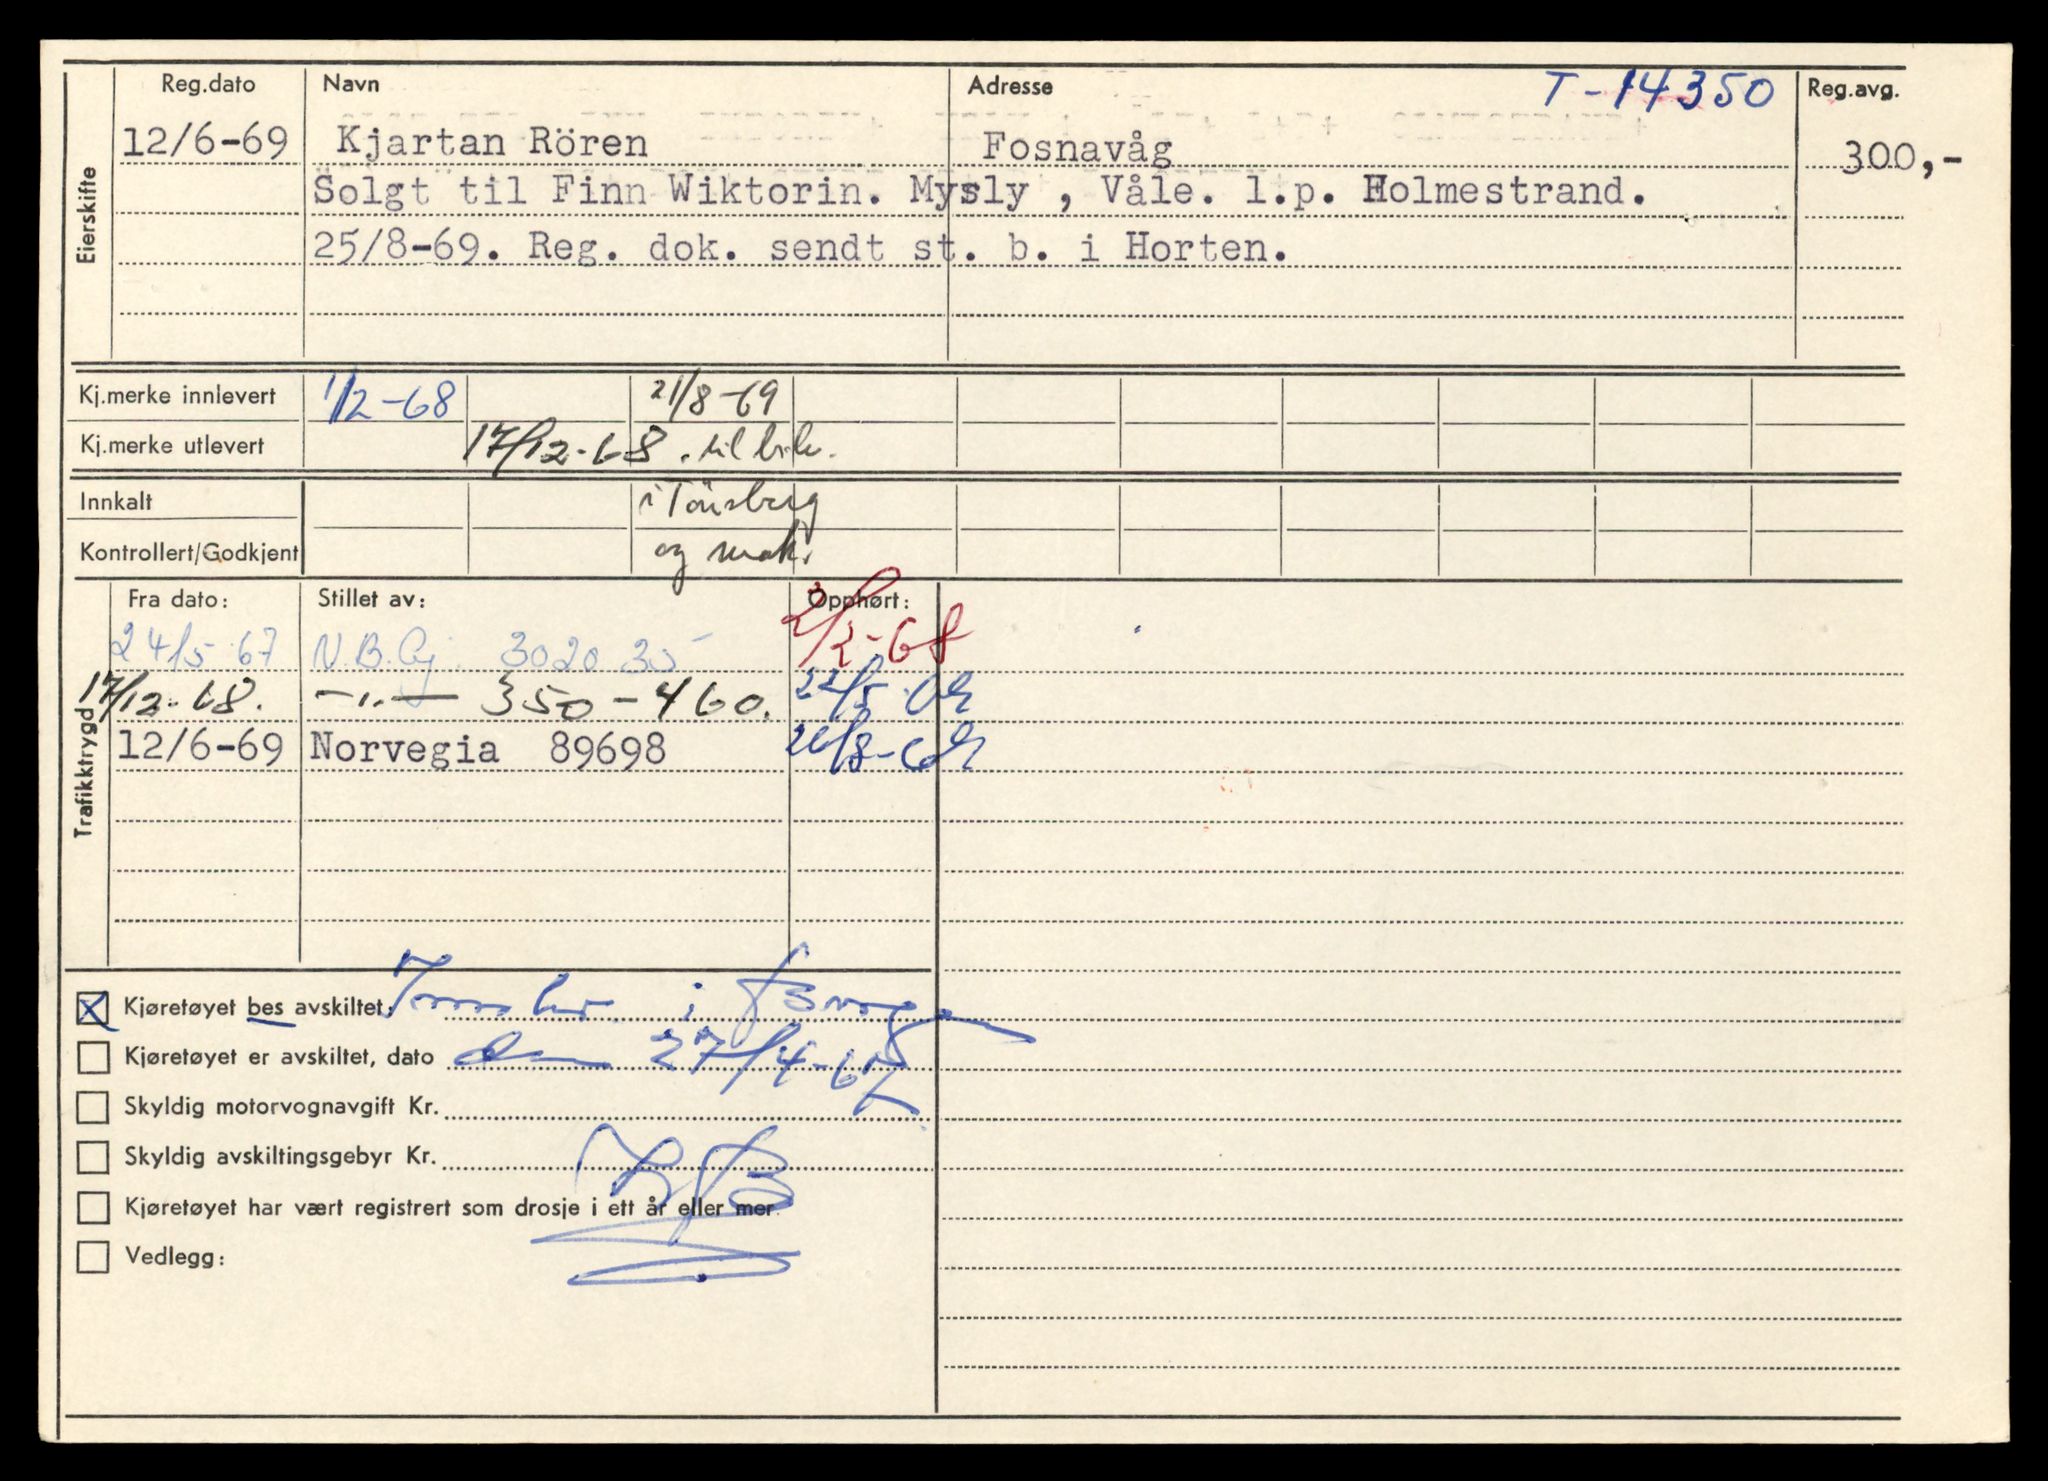 T-14350
Reg.dato Navn Adresse Reg.avg.
Eierskifte
12/6-69 Kjartan Rören Fosnavåg 300,-
Solgt til Finn Wiktorin. Mysly , Våle. l.p. Holmestrand.
25/8-69. Reg. dok. sendt st. b. i Horten.
Kj.merke innlevert 1/2-68 21/8-69
Kj.merke utlevert 17/12-68. til
Innkalt i Tönsberg
Kontrollert/Godkjent og
Trafikktrygd
Fra dato: Stillet av: Opphørt:
24/5-67 N.B.Gj. 302035 2/2-68
17/12-68. —„— 350-460. 22/5-69
12/6-69 Norvegia 89698 26/8-69
X Kjøretøyet bes avskiltet: i
Kjøretøyet er avskiltet, dato den 27/4-67
Skyldig motorvognavgift Kr.
Skyldig avskiltingsgebyr Kr.
Kjøretøyet har vært registrert som drosje i ett år eller mer
Vedlegg: